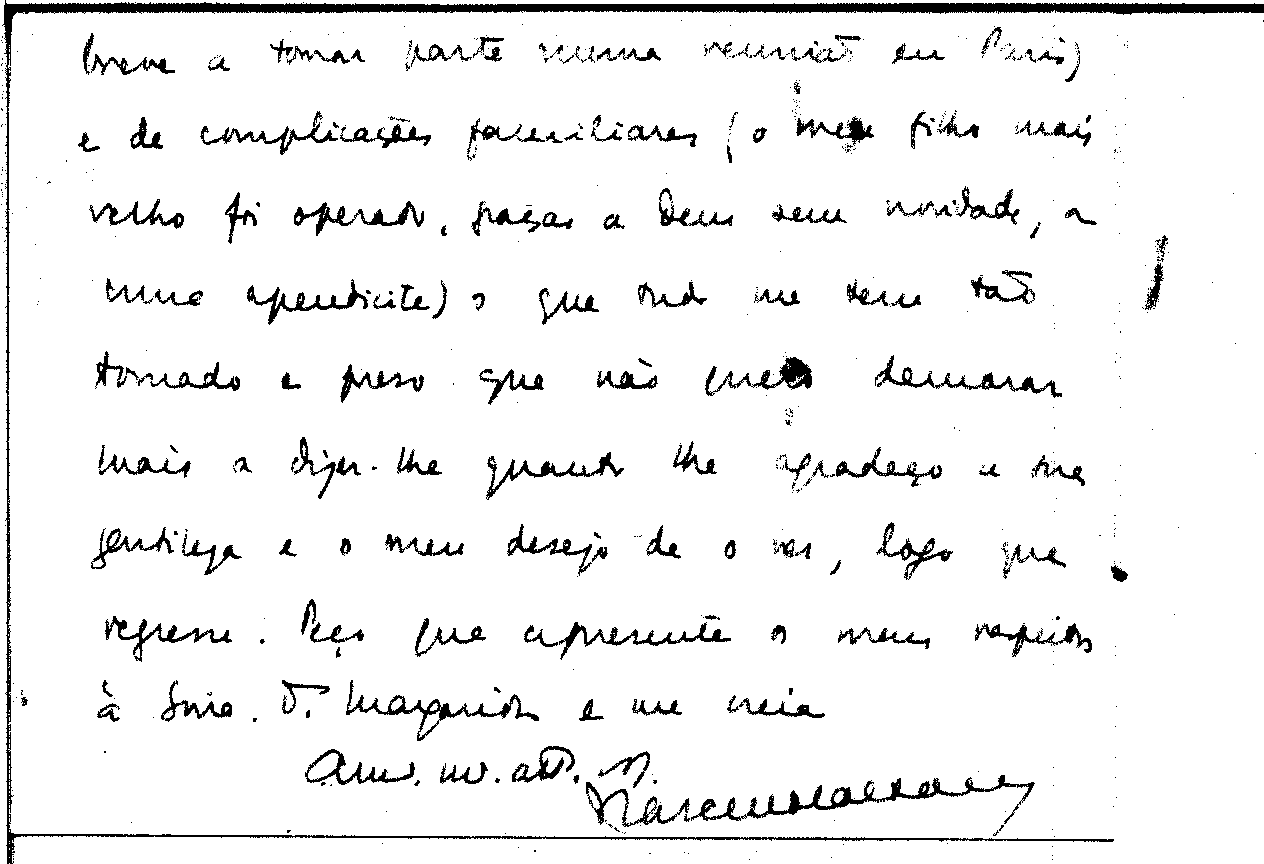 breve a tomar parte numa reunião em Paris)
e de complicações familiares (o meu filho mais
velho foi operado, graças a Deus sem novidade, a
uma apendicite) o que tudo me tem tão
tomado e preso que não quero demorar
mais a dizer-lhe quanto lhe agradeço a sua
gentileza e o meu desejo de o ver, logo que
regresse. Peço que apresente os meus respeitos
à Snra. D. Margarida e me creia
am. m. att.
Marcello Caetano